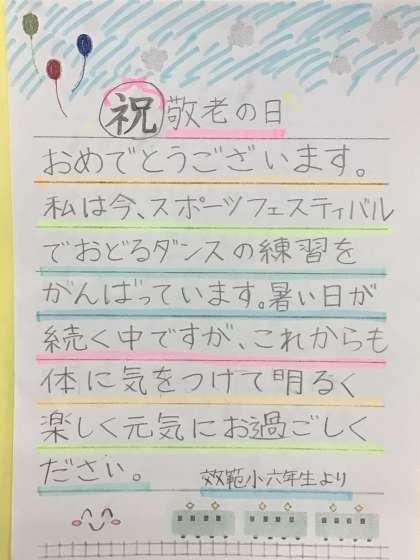 祝敬老の日
おめでとうございます。
私は今、スポーツフェスティバル
でおどるダンスの練習を
がんばっています。暑い日が
続く中ですが、これからも
体に気をつけて明るく
楽しく元気にお過ごしく
ださい。
效範小六年生より